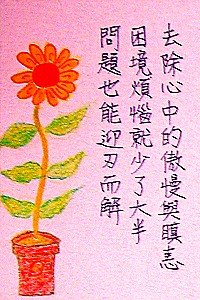 去除心中的傲慢與瞋恚
困境煩惱就少了大半
問題也能迎刃而解